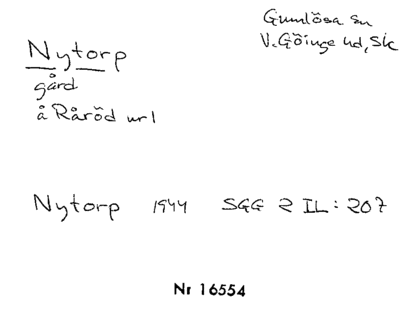 Nytorp
gård
å Råröd url
Gumlösa sn
V. Göinge hd, Sk
Nytorp 1944 SGG 2 IL: 207
Nr 16554